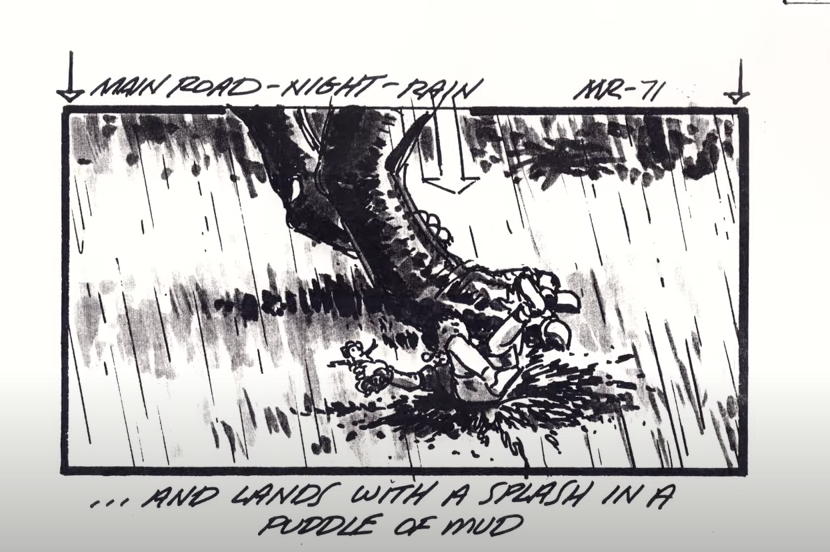 MAIN ROAD-NIGHT-RAIN MR-71
... AND LANDS WITH A SPLASH IN A
PUDDLE OF MUD